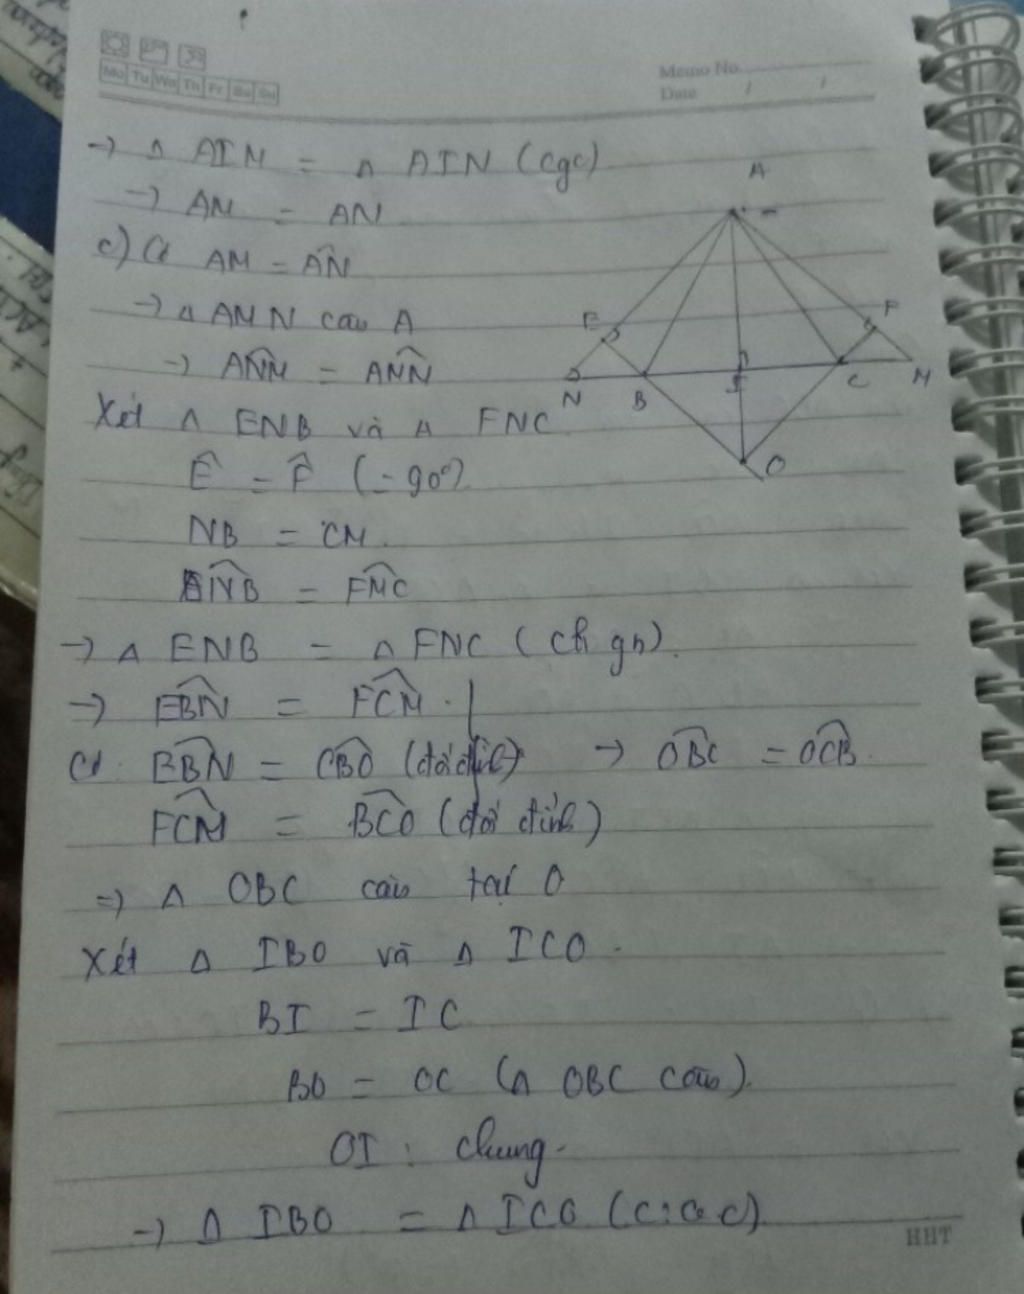 Mo Tu We Th Fr Sa Su
Memo No.
Date / /
→ Δ AIM = Δ AIN (cgc)
→ AM = AN
c) Có AM = AN
→ Δ AMN cân A
→ ANM = AMN
Xét Δ ENB và Δ FNC
Ê = F̂ (= 90°)
NB = CM.
ENB = FMC
→ Δ ENB = Δ FNC (ch gn).
→ EBN = FCM.
Có EBN = CBO (đối đỉnh) → OBC = OCB.
FCM = BCO (đối đỉnh)
=> Δ OBC cân tại O
Xét Δ IBO và Δ ICO.
BI = IC
BO = OC (Δ OBC cân).
OI : chung.
→ Δ IBO = Δ ICO (c.c.c)
HHT
A
E
F
N
B
I
C
M
O